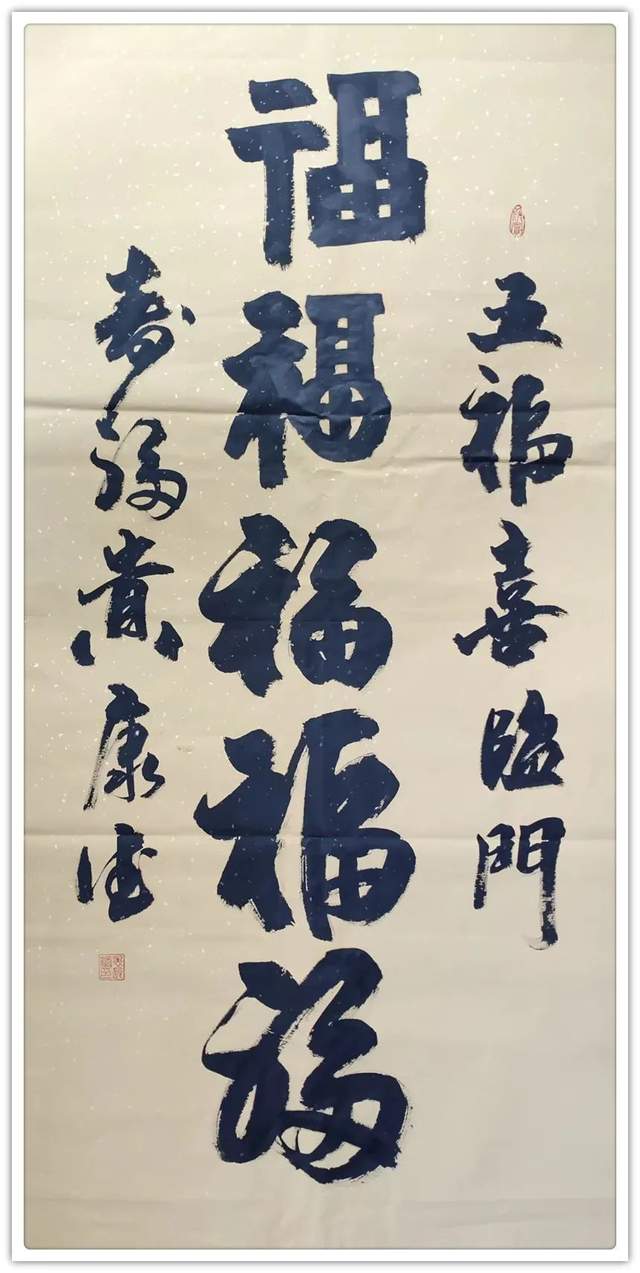 五福喜臨門
福福福福福
寿福贵康德